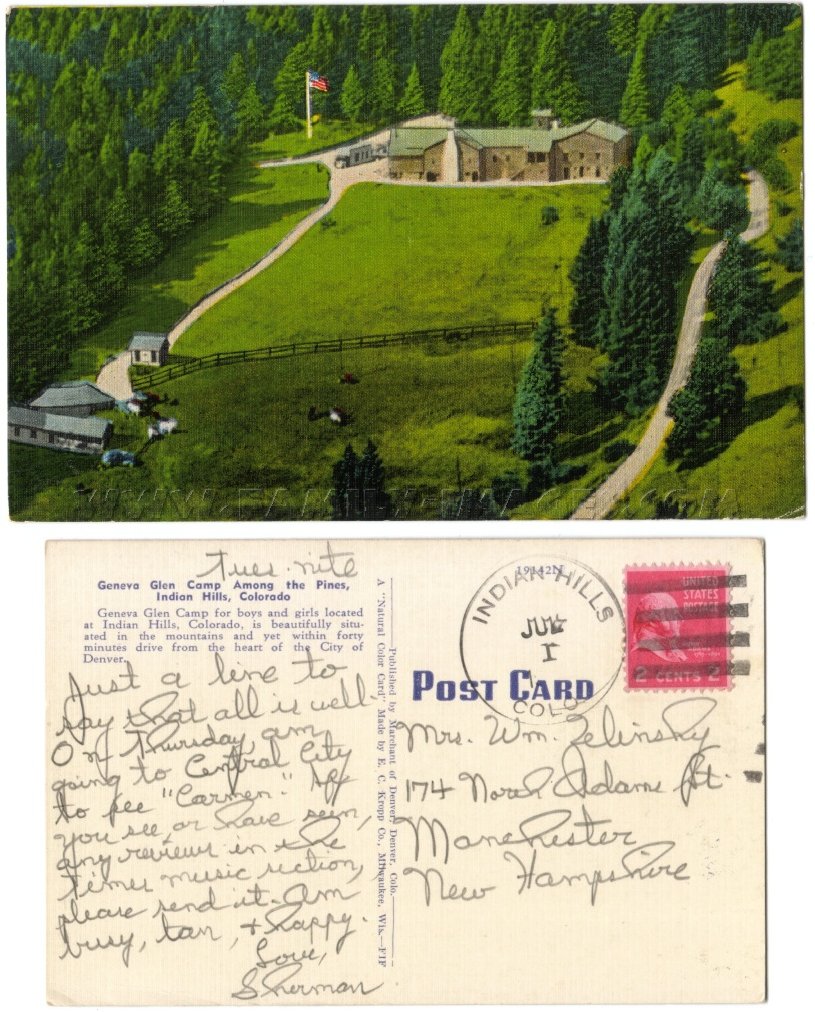 WWW.FAMILY-IMAGES.COM
Tues. nite
Geneva Glen Camp Among the Pines,
Indian Hills, Colorado
Geneva Glen Camp for boys and girls located
at Indian Hills, Colorado, is beautifully situ-
ated in the mountains and yet within forty
minutes drive from the heart of the City of
Denver.
Just a line to
say that all is well.
On Thursday am
going to Central City
to see "Carmen". If
you see, or have seen,
any reviews in the
times music section,
please send it. Am
busy, tan, + happy.
Love,
Sherman
Published by Marchant of Denver, Denver, Colo.
A "Natural Color Card" Made by E. C. Kropp Co., Milwaukee, Wis.—FTF
19142N
INDIAN HILLS
JUL
1
COLO
UNITED
STATES
POSTAGE
2 CENTS 2
POST CARD
Mrs. Wm. Zelinsky
174 North Adams St.
Manchester
New Hampshire